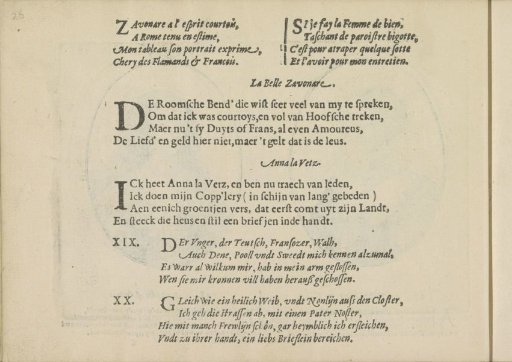 26
ZAvonare a l'esprit courtois,
A Rome tenu en estime,
Mon tableau son portrait exprime,
Chery des Flamands & Francois.
SI je fay la Femme de bien,
Taschant de paroistre bigotte,
C'est pour atraper quelque sotte
Et l'avoir pour mon entretien.
La Belle Zavonare.
DE Roomsche Bend' die wist seer veel van my te spreken,
Om dat ick was courtoys, en vol van Hoofsche treken,
Maer nu 't sy Duyts of Frans, al even Amoureus,
De Liefd' en geld hier niet, maer 't gelt dat is de leus.
Anna la Vetz.
ICk heet Anna la Vetz, en ben nu traech van leden,
Ick doen mijn Copp'lery (in schijn van lang' gebeden)
Aen eenich groentjen vers, dat eerst comt uyt zijn Landt,
En steeck die heus en stil een briefjen inde handt.
XIX.
DEr Unger, der Teutsch, Franſozer, Walh,
Auch Dene, Pooll vndt Sweedt mich kennen alzumal,
Es warr al wilkum mir, hab in mein arm geſloſſen,
Wen ſie mir kronnen vill haben herauß geſchoſſen.
XX.
GLeich wie ein heilich Weib, vndt Nonlijn auſs den Cloſter,
Ich geh die ſtraſſen ab. mit einen Pater Noſter,
Hie mit manch Frewlijn ſchön, gar heymblich ich erſleichen,
Vndt zu ihrer handt, ein liebs Briefſlein bereichen.